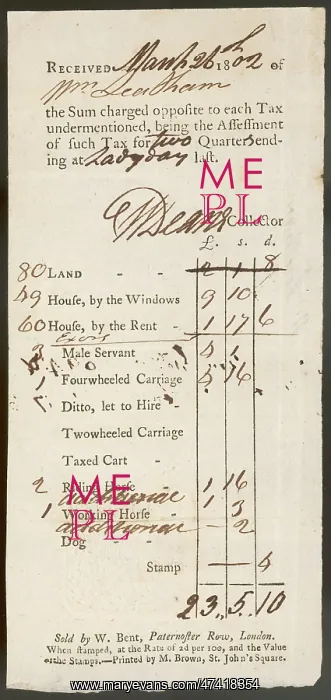 RECEIVED March 26th 1802 of
Wm Leatham
the Sum charged opposite to each Tax
undermentioned, being the Assessment
of such Tax for two Quarters end-
ing at Ladyday last.
ME
PL
WDeans Collector
£. s. d.
80 LAND - - 2 1 8
49 House, by the Windows 9 10
60 House, by the Rent - 1 17 6
Male Servant 4 1
1 Fourwheeled Carriage 4 16
Ditto, let to Hire -
Twowheeled Carriage
Taxed Cart -
2 Riding Horse 1 16
additional 1 3
1 Working Horse -
additional — 2
Dog
ME
PL
Stamp — 4
23 . 5 . 10
Sold by W. Bent, Paternoster Row, London.
When stamped, at the Rate of 2d per 100, and the Value
of the Stamps.—Printed by M. Brown, St. John's Square.
www.maryevans.com/47418354